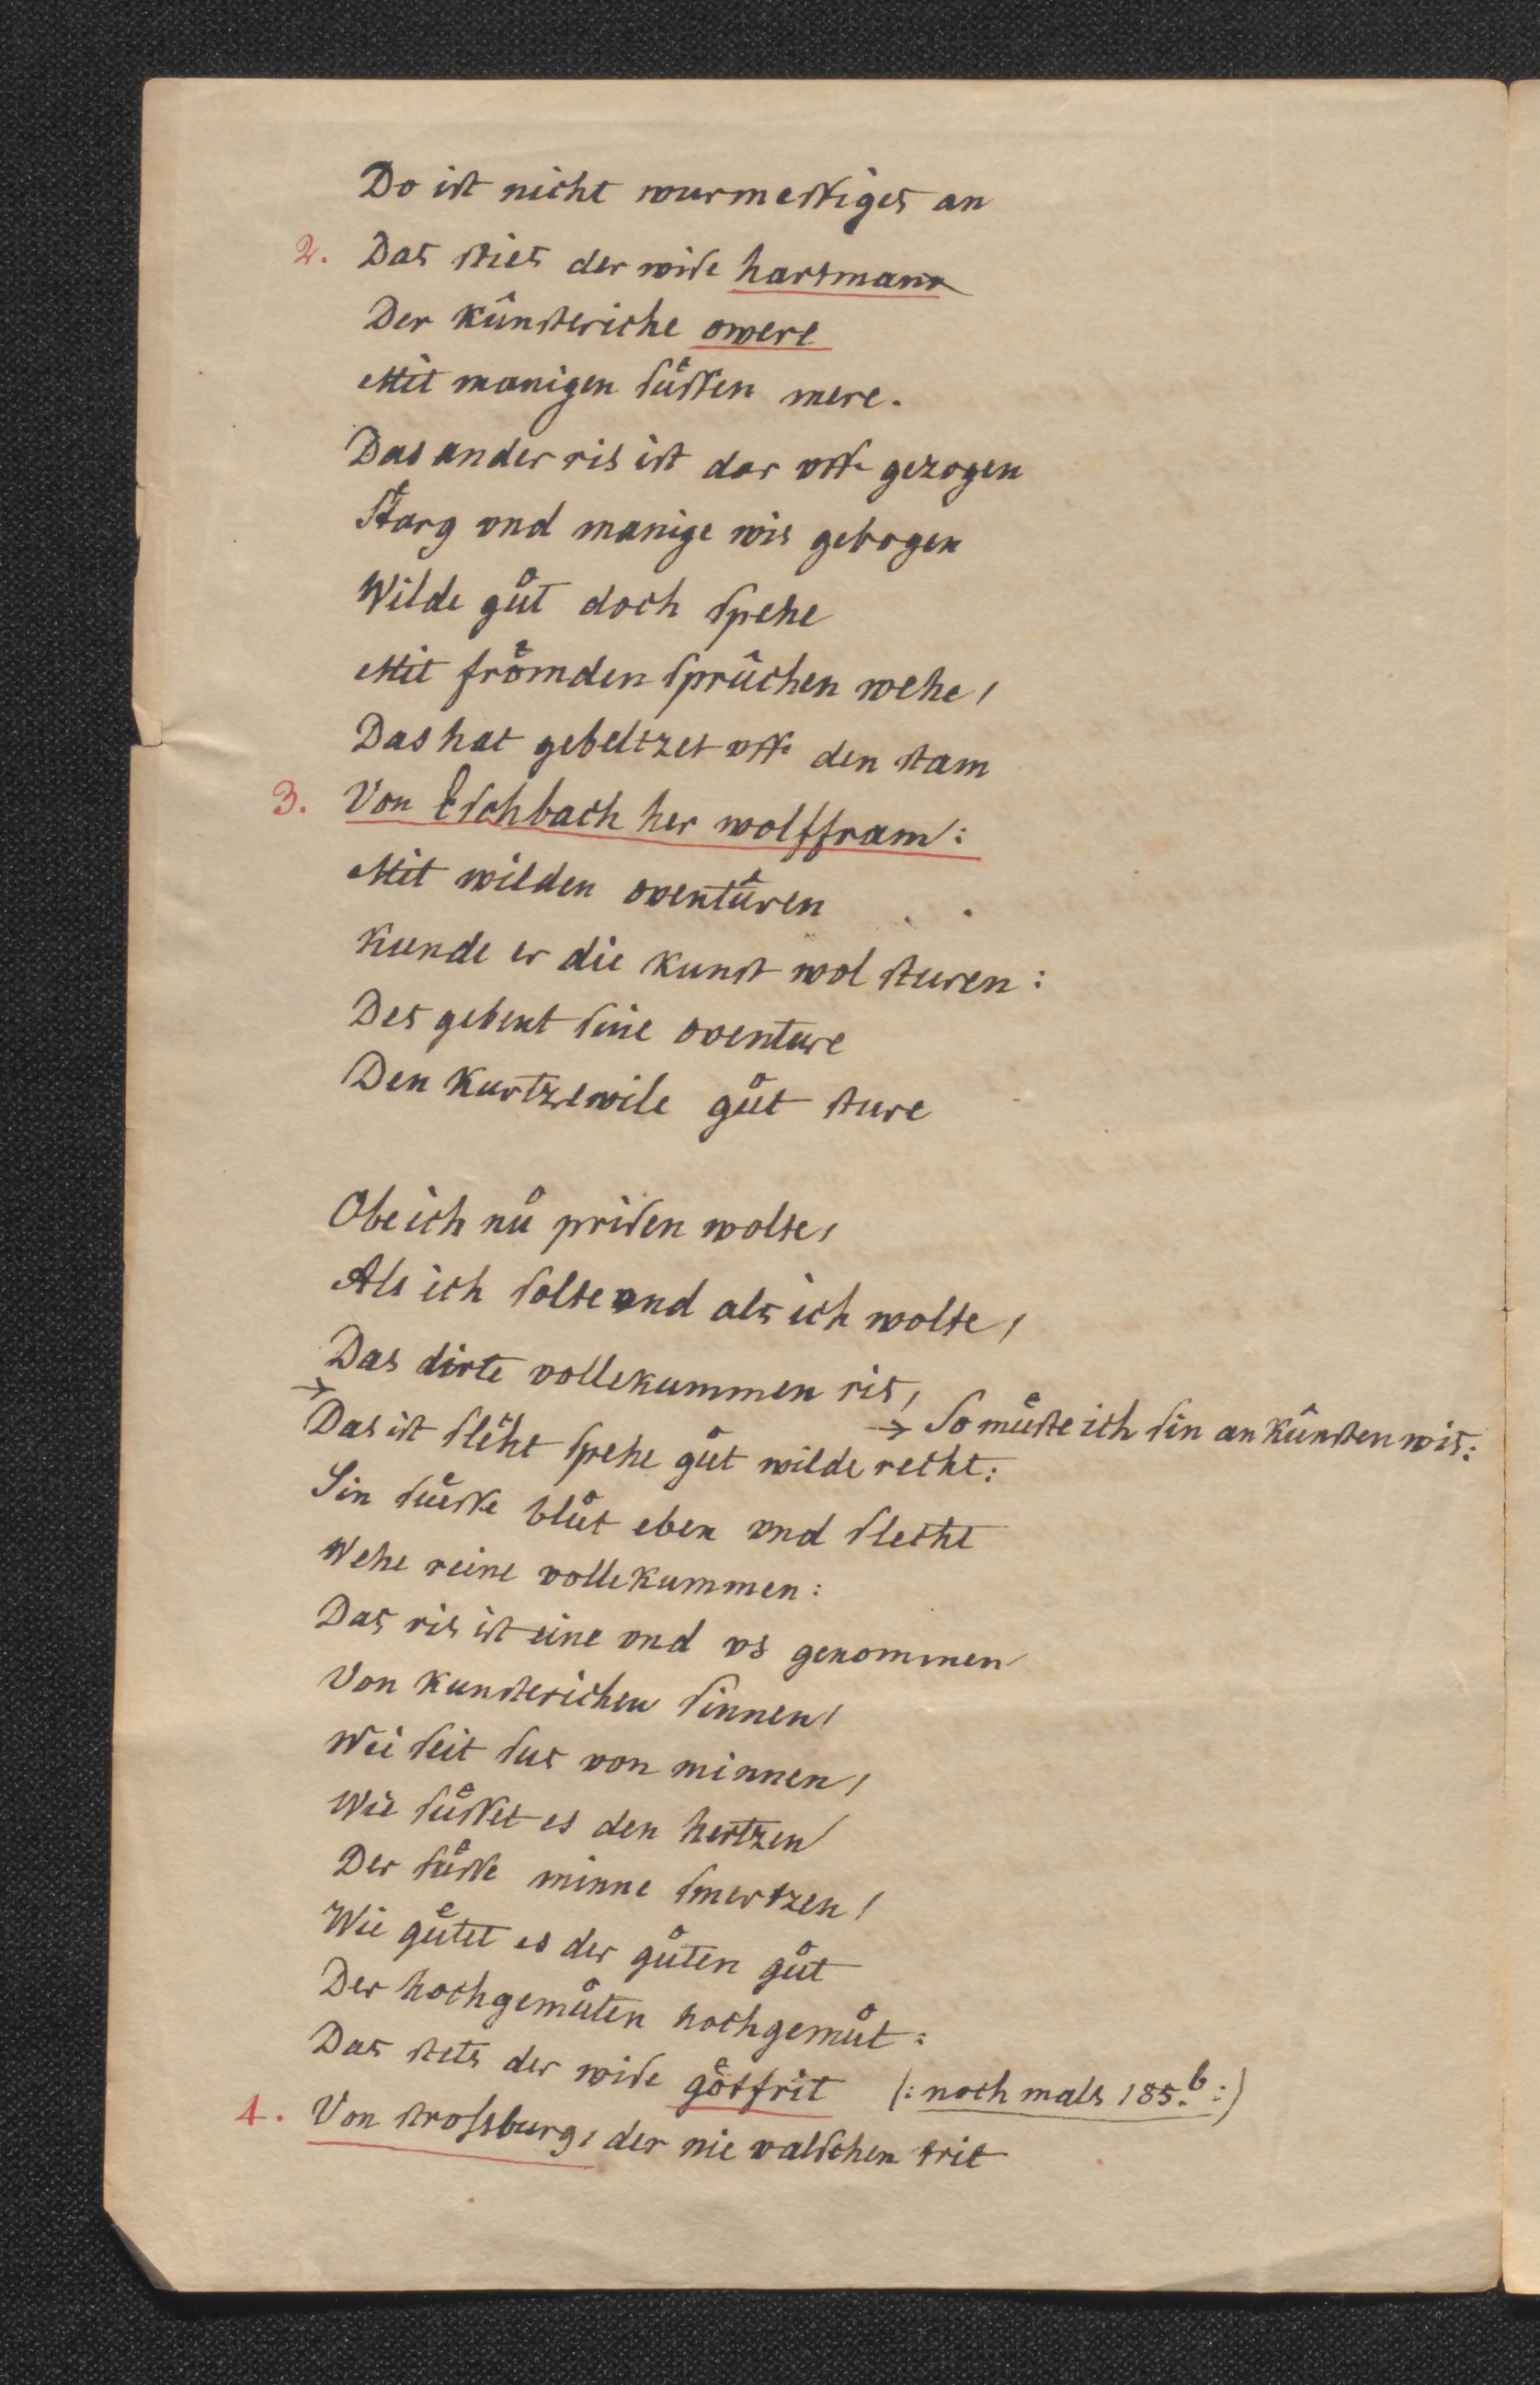 Do ist nicht wurmessiges an
2. Das sties der wise hartmann
Der kûnsteriche owere
Mit manigen sůssen mere.
Das ander ris ist dar vffe gezogen
Starg vnd manige wis gebogen
Wilde gůt doch spehe
Mit frömden sprûchen wehe,
Das hat gebeltzet vffe den stam
3. Von Eschbach her wolffram:
Mit wilden oventuren
Kunde er die kunst wol sturen:
Des gebent sine oventure
Den kurtzewile gůt sture
Obe ich nů prisen wolte,
Als ich solte vnd als ich wolte,
Das dirte vollekummen ris,
→ So můste ich sin an kûnsten wis:
→ Das ist sleht spehe gůt wilde recht:
Sin sůesse blůt eben vnd slecht
Wehe reine vollekummen:
Das ris ist eine vnd vs genommen
Von kunsterichen sinnen,
Wie seit sus von minnen,
Wie sůsset es den hertzen
Der sůsse minne smertzen,
Wie gůtet es der gůten gůt
Der hochgemůten hochgemůt:
Das stets der wise götfrit (: noch mals 185.b :)
4. Von strossburg, der nie valschen trit